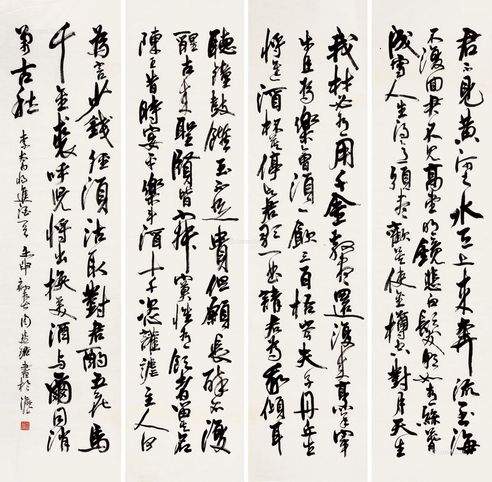 君不見黃河之水天上來奔流到海
不復回君不見高堂明鏡悲白髮朝如青絲暮
成雪人生得意須盡歡莫使金樽空對月天生
我材必有用千金散盡還復來烹羊宰
牛且為樂會須一飲三百杯岑夫子丹丘生
將進酒杯莫停與君歌一曲請君為我傾耳
聽鐘鼓饌玉不足貴但願長醉不復
醒古來聖賢皆寂寞惟有飲者留其名
陳王昔時宴平樂斗酒十千恣讙謔主人何
為言少錢徑須沽取對君酌五花馬
千金裘呼兒將出換美酒與爾同消
萬古愁
李白將進酒一首 壬申初春周慧珺書於滬